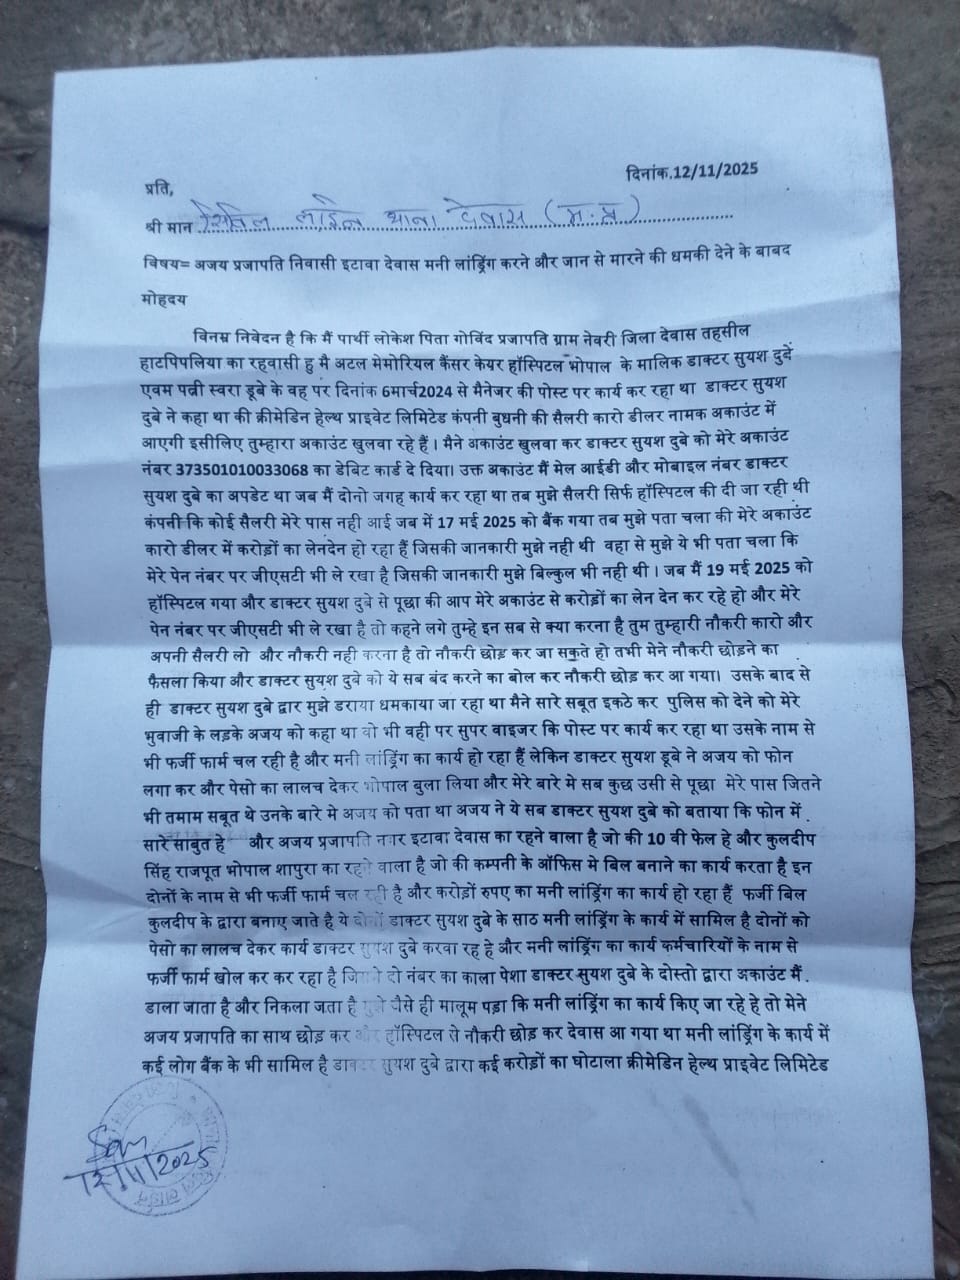 दिनांक.12/11/2025
प्रति,
श्री मान सिविल लाईन थाना देवास (म.प्र)
विषय= अजय प्रजापति निवासी इटावा देवास मनी लांड्रिंग करने और जान से मारने की धमकी देने के बाबद
मोहदय
विनम्र निवेदन है कि मैं पार्थी लोकेश पिता गोविंद प्रजापति ग्राम नेवरी जिला देवास तहसील
हाटपिपलिया का रहवासी हु मै अटल मेमोरियल कैंसर केयर हॉस्पिटल भोपाल के मालिक डाक्टर सुयश दुबें
एवम पत्नी स्वरा डूबे के वह पर दिनांक 6मार्च2024 से मैनेजर की पोस्ट पर कार्य कर रहा था डाक्टर सुयश
दुबे ने कहा था की क्रीमेडिन हेल्थ प्राइवेट लिमिटेड कंपनी बुधनी की सैलरी कारो डीलर नामक अकाउंट में
आएगी इसीलिए तुम्हारा अकाउंट खुलवा रहे हैं । मैने अकाउंट खुलवा कर डाक्टर सुयश दुबे को मेरे अकाउंट
नंबर 373501010033068 का डेबिट कार्ड दे दिया। उक्त अकाउंट मैं मेल आईडी और मोबाइल नंबर डाक्टर
सुयश दुबे का अपडेट था जब मैं दोनो जगह कार्य कर रहा था तब मुझे सैलरी सिर्फ हॉस्पिटल की दी जा रही थी
कंपनी कि कोई सैलरी मेरे पास नही आई जब में 17 मई 2025 को बैंक गया तब मुझे पता चला की मेरे अकाउंट
कारो डीलर में करोड़ों का लेनदेन हो रहा हैं जिसकी जानकारी मुझे नही थी वहा से मुझे ये भी पता चला कि
मेरे पेन नंबर पर जीएसटी भी ले रखा है जिसकी जानकारी मुझे बिल्कुल भी नही थी । जब मैं 19 मई 2025 को
हॉस्पिटल गया और डाक्टर सुयश दुबे से पूछा की आप मेरे अकाउंट से करोड़ों का लेन देन कर रहे हो और मेरे
पेन नंबर पर जीएसटी भी ले रखा है तो कहने लगे तुम्हे इन सब से क्या करना है तुम तुम्हारी नौकरी कारो और
अपनी सैलरी लो और नौकरी नही करना है तो नौकरी छोड़ कर जा सकते हो तभी मेने नौकरी छोड़ने का
फैसला किया और डाक्टर सुयश दुबे को ये सब बंद करने का बोल कर नौकरी छोड़ कर आ गया। उसके बाद से
ही डाक्टर सुयश दुबे द्वार मुझे डराया धमकाया जा रहा था मैने सारे सबूत इकठे कर पुलिस को देने को मेरे
भुवाजी के लड़के अजय को कहा था वो भी वही पर सुपर वाइजर कि पोस्ट पर कार्य कर रहा था उसके नाम से
भी फर्जी फार्म चल रही है और मनी लांड्रिंग का कार्य हो रहा हैं लेकिन डाक्टर सुयश डूबे ने अजय को फोन
लगा कर और पेसो का लालच देकर भोपाल बुला लिया और मेरे बारे मे सब कुछ उसी से पूछा मेरे पास जितने
भी तमाम सबूत थे उनके बारे मे अजय को पता था अजय ने ये सब डाक्टर सुयश दुबे को बताया कि फोन में
सारे साबुत हे और अजय प्रजापति नगर इटावा देवास का रहने वाला है जो की 10 वी फेल हे और कुलदीप
सिंह राजपूत भोपाल शापुरा का रहने वाला है जो की कम्पनी के ऑफिस मे बिल बनाने का कार्य करता है इन
दोनों के नाम से भी फर्जी फार्म चल रही है और करोड़ों रुपए का मनी लांड्रिंग का कार्य हो रहा हैं फर्जी बिल
कुलदीप के द्वारा बनाए जाते है ये दोनों डाक्टर सुयश दुबे के साठ मनी लांड्रिंग के कार्य में सामिल है दोनों को
पेसो का लालच देकर कार्य डाक्टर सुयश दुबे करवा रह हे और मनी लांड्रिंग का कार्य कर्मचारियों के नाम से
फर्जी फार्म खोल कर कर रहा है जिसमे दो नंबर का काला पेशा डाक्टर सुयश दुबे के दोस्तो द्वारा अकाउंट मैं
डाला जाता है और निकला जता है मुझे जैसे ही मालूम पड़ा कि मनी लांड्रिंग का कार्य किए जा रहे हे तो मेने
अजय प्रजापति का साथ छोड़ कर और हॉस्पिटल से नौकरी छोड़ कर देवास आ गया था मनी लांड्रिंग के कार्य में
कई लोग बैंक के भी सामिल है डाक्टर सुयश दुबे द्वारा कई करोड़ों का घोटाला क्रीमेडिन हेल्थ प्राइवेट लिमिटेड
12/11/2025